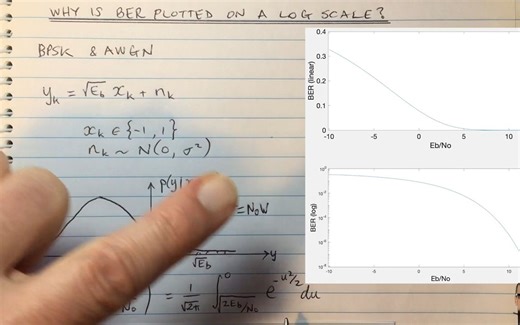 WHY IS BER PLOTTED ON A LOG SCALE?
BPSK & AWGN
y_k = √E_b x_k + n_k
x_k ∈ {-1, 1}
n_k ~ N(0, σ²)
p(y|
= N₀W
√E_b
→y
= 1/√2π ∫ √2E_b/N₀ e^{-u²/2} du
0.4
0.3
0.2
0.1
0
BER (linear)
-10 -5 0 5 10
Eb/No
BER (log)
-10 -5 0 5 10
Eb/No